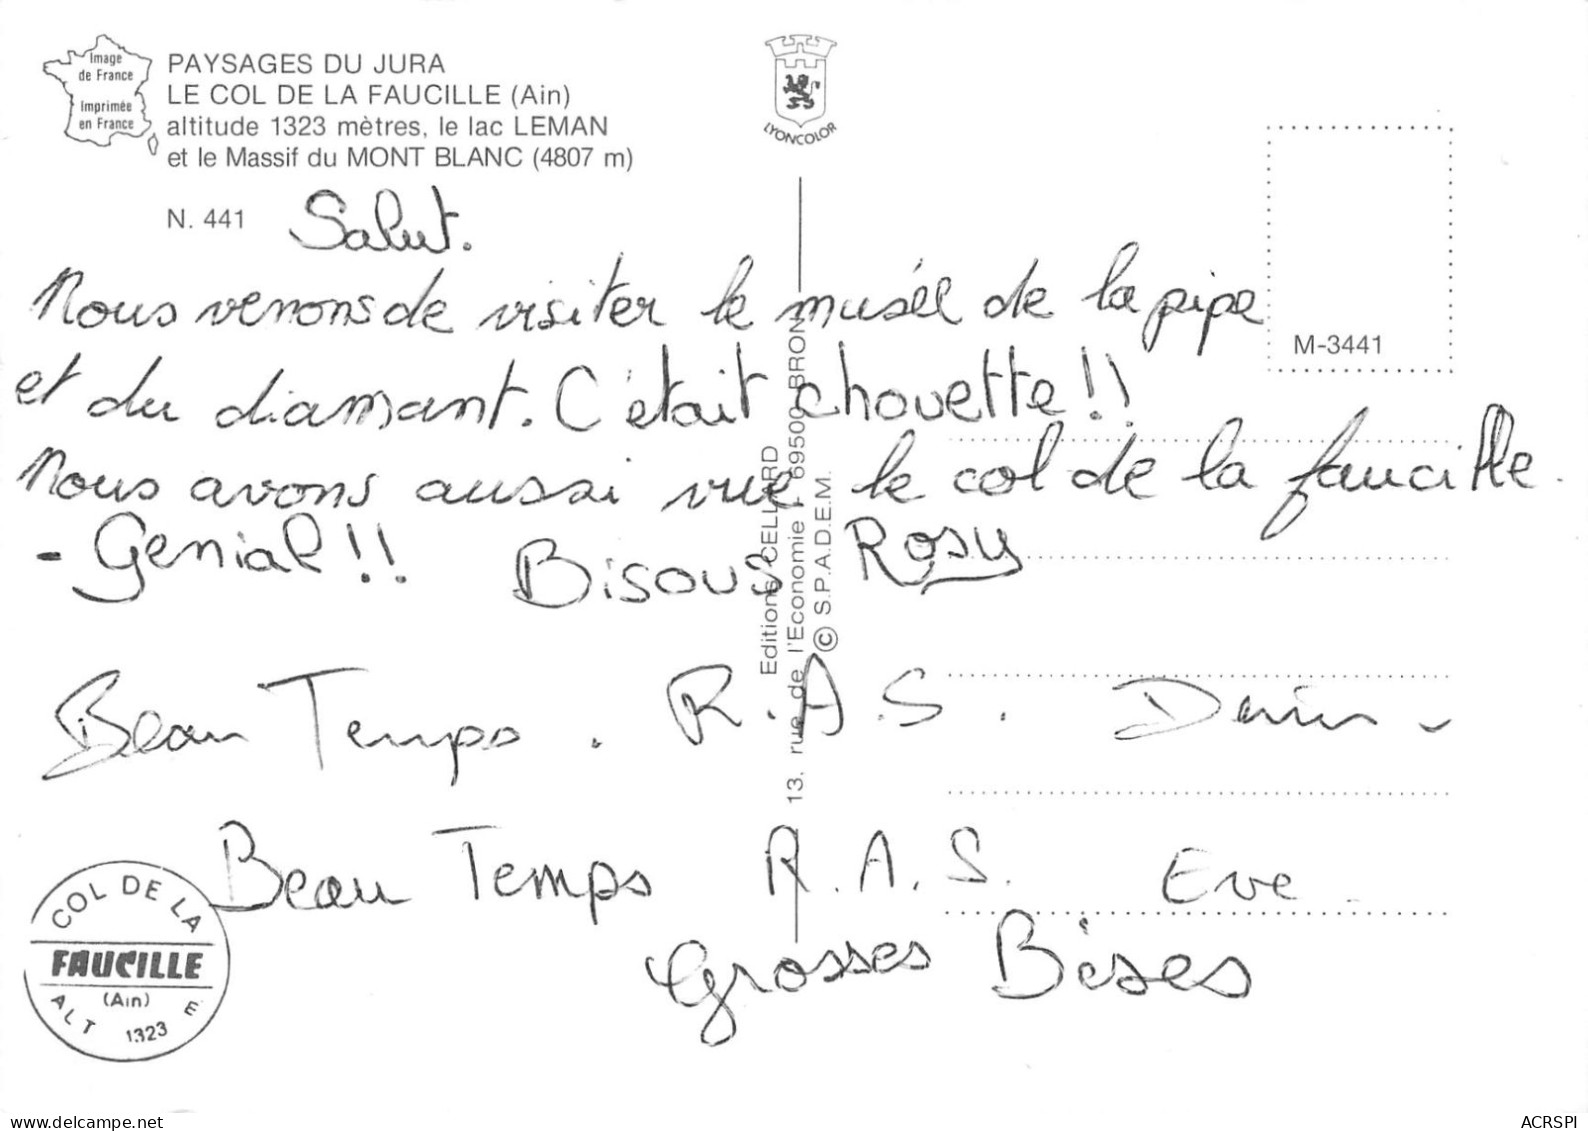 Image
de France
Imprimée
en France
PAYSAGES DU JURA
LE COL DE LA FAUCILLE (Ain)
altitude 1323 mètres, le lac LEMAN
et le Massif du MONT BLANC (4807 m)
N. 441
LYONCOLOR
M-3441
Salut.
Nous venons de visiter le musée de la pipe
et du diamant. C'était chouette!!
Nous avons aussi vue le col de la faucille.
- Génial!! Bisous Rosy
Beau Temps. R.A.S.
Beau Temps R.A.S. Eve.
Grosses Bises
Editions CELLARD
13, rue de l'Economie - 69500 BRON
© S.P.A.D.E.M.
COL DE LA
FAUCILLE
(Ain)
ALT 1323
E
delcampe.net
ACRSPI